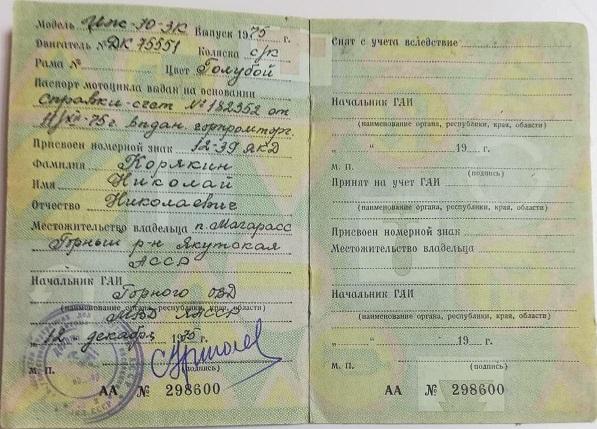 Модель Иж-Ю-3К Выпуск 1975 г.
Двигатель № ДК 75551 Коляска с/к
Рама № Цвет Голубой
Паспорт мотоцикла выдан на основании
Справки-счет № 182952 от
11/XII-75 г. выдан. горпромторг.
Присвоен номерной знак 12-39 ЯКД
Фамилия Корякин
Имя Николай
Отчество Николаевич
Местожительство владельца п. Магарасс
Горный р-н Якутская
АССР
Начальник ГАИ
Горного ОВД
(наименование органа, республики, края, области)
МВД ЯАССР
„12“ декабря 1975 г.
М. П. (подпись)
АА № 298600
Снят с учета вследствие
Начальник ГАИ
(наименование органа, республики, края, области)
„ “ 19 г.
М. П. (подпись)
Принят на учет ГАИ
(наименование органа, республики, края, области)
Присвоен номерной знак
Местожительство владельца
Начальник ГАИ
(наименование органа, республики, края, области)
„ “ 19 г.
М. П. (подпись)
АА № 298600